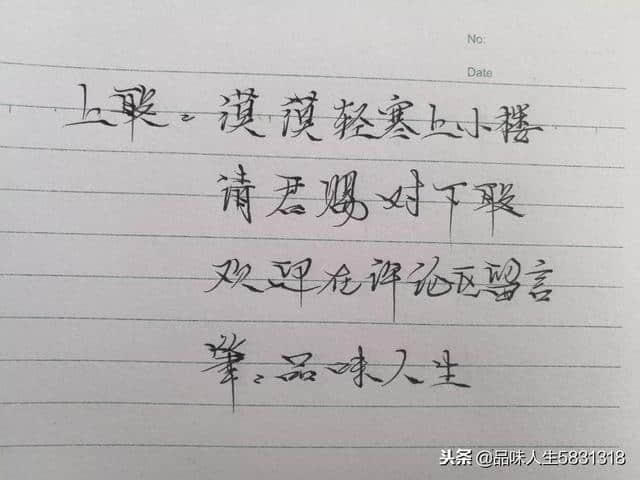 No:
Date
上联：漠漠轻寒上小楼
请君赐对下联
欢迎在评论区留言
筆：品味人生
头条 @品味人生5831318